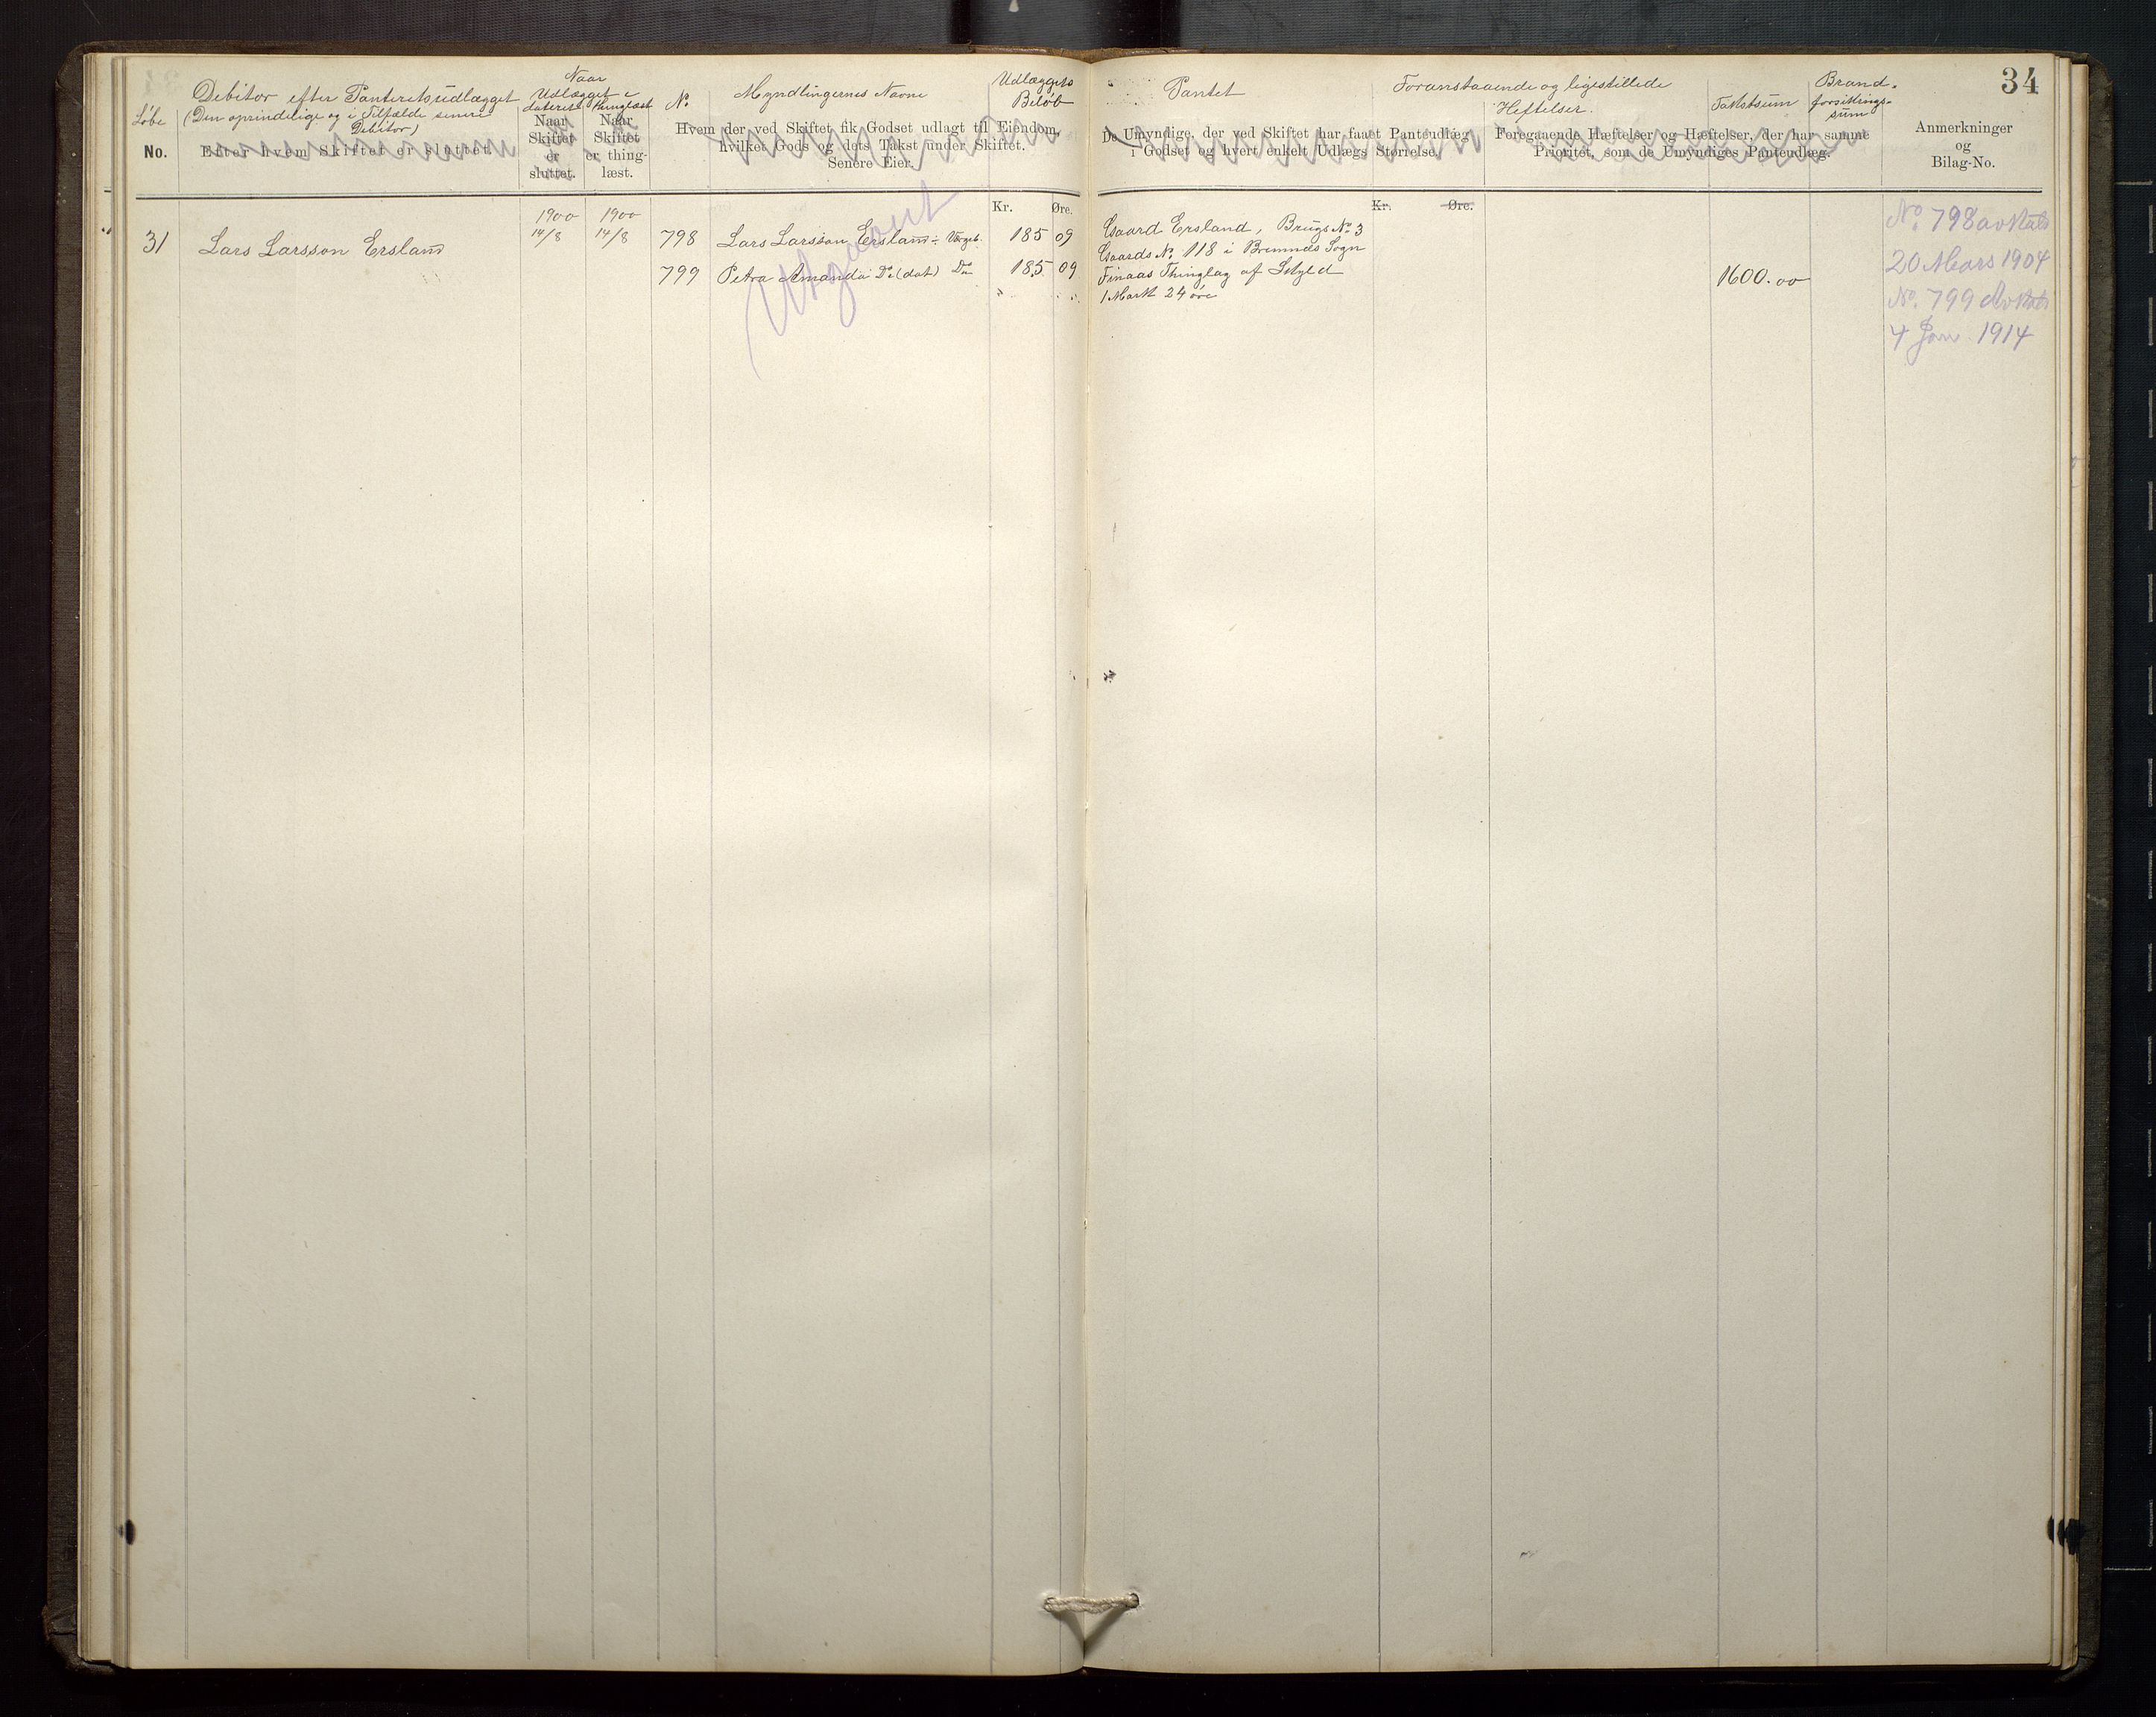 34
Løbe
No.
Debitor efter Panteretsudlægget
(Den oprindelige og i Tilfælde senere
Debitor)
Efter hvem Skiftet er sluttet.
Naar
Udlægget e
dateret
thinglæst
Naar
Skiftet
er
sluttet.
Naar
Skiftet
er thing-
læst.
No
Myndlingernes Navne
Hvem der ved Skiftet fik Godset udlagt til Eiendom,
hvilket Gods og dets Takst under Skiftet.
Senere Eier.
Udlæggets
Beløb
Kr. Øre.
Pantet
De Umyndige, der ved Skiftet har faaet Panteudlæg
i Godset og hvert enkelt Udlægs Størrelse.
Kr. Øre.
Foranstaaende og ligestillede
Heftelser.
Foregaaende Hæftelser og Hæftelser, der har samme
Prioritet, som de Umyndiges Panteudlæg.
Takstsum
Brand-
forsikrings-
sum
Anmerkninger
og
Bilag-No.
31 Lars Larsson Ersland
1900 1900
14/8 14/8
798 Lars Larsson Ersland 185 09
799 Petra Amanda Do (dat) Do 185 09
Gaard Ersland, Brugs No 3
Gaards No. 118 i Bremnes Sogn
Finaas Thinglag af Skyld
1 Mark 24 øre
1600.00
No. 798
20 Mars 1904
No. 799
4 Jan 1914